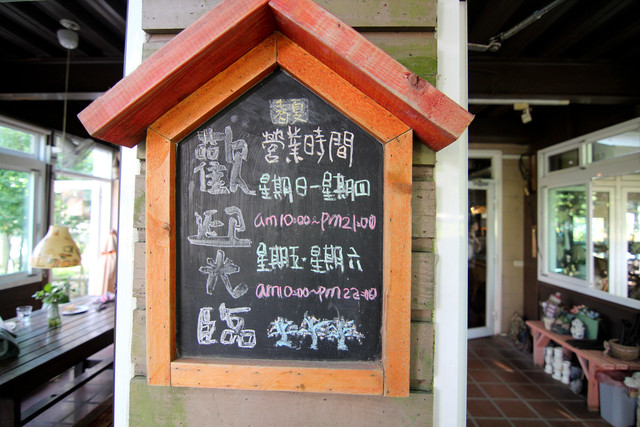 春夏
歡迎光臨
營業時間
星期日-星期四
am10:00~pm21:00
星期五·星期六
am10:00~pm22:00